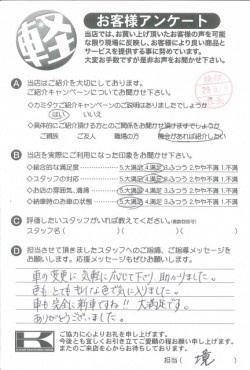 軽
お客様アンケート
当店では、お買い上げ頂いたお客様の声を可能
な限り現場に反映し、お客様により良い商品と
サービスを提供する事に努めています。
大変お手数ですが是非お声をお聞かせ下さい。
A 当店はご紹介を大切にしております。
ご紹介キャンペーンについてお聞かせ下さい。
・カミタウご紹介キャンペーンのご説明はありましたでしょうか
はい いいえ
・具体的にご紹介頂ける方とのご関係をお聞かせ頂けますでしょうか
ご親族 ご友人 職場の方 機会があれば紹介したい
B 当店を実際にご利用になった印象をお聞かせ下さい。
・総合的な満足度 5.大満足 4.満足 3.ふつう 2.やや不満 1.不満
・スタッフの対応 5.大満足 4.満足 3.ふつう 2.やや不満 1.不満
・お店の雰囲気、清掃 5.大満足 4.満足 3.ふつう 2.やや不満 1.不満
・納車時のお車の状態 5.大満足 4.満足 3.ふつう 2.やや不満 1.不満
C 評価したいスタッフがいれば教えてください。(複数回答可)
スタッフ名( )( )( )
D 担当させて頂きましたスタッフへのご指摘、ご指導メッセージを
お願いします。応援メッセージもぜひお願いします。
車の変更に気軽に応じて下さり助かりました。
色もとてもきれいな色で気に入りました。
車も完全に新車ですね!! 大満足です。
ありがとうございました。
K
ご協力に心よりお礼を申し上げます。
今後とも宜しくお引き立てご愛顧の程お願い申し上げます。
またのご来店を心からお待ちしております。
担当( 境 )